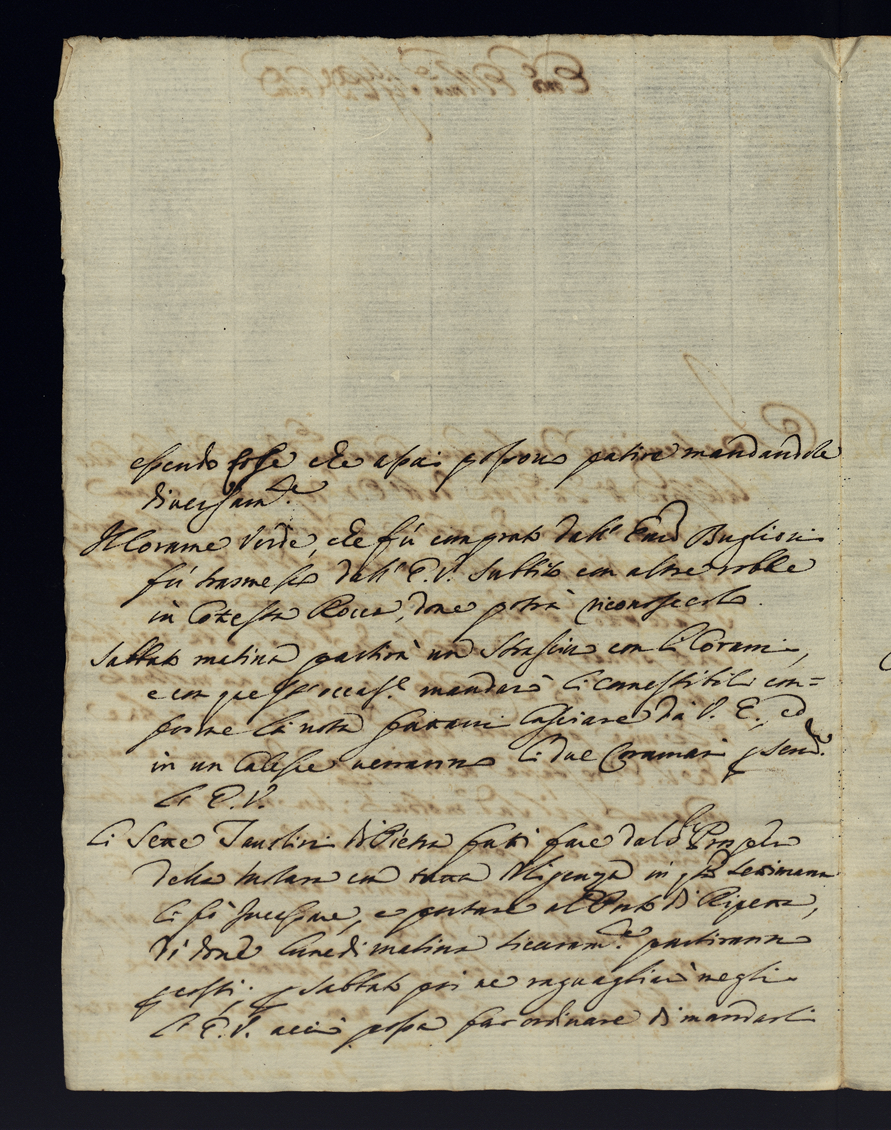 essendo cose che assai possono patire mandandole
diversam.te
Il Corame verde, che fù comprato dall' Buglioni
fù trasmesso dall' E. V. subbito con altre robbe
in cotesta Rocca, dove potrà riconoscerlo.
Sabbato matina partirà un Strascino con li Corami,
e con quest'occas.e mandarò li comestibili con=
forme la nota fattami lasciare da V. E., ed
in un Calesse verranno li due per serv.
l' E. V.
Li Sette Tavolini di Pietra fatti fare dal
della con tutta diligenza in settimana
li fò incassare, e portare al Porto di Ripetta,
di dove lunedi matina sicuram.te partiranno
per costì; per sabbato poi ne raguagliarò meglio
l' E. V. acciò possa far ordinare di mandarli